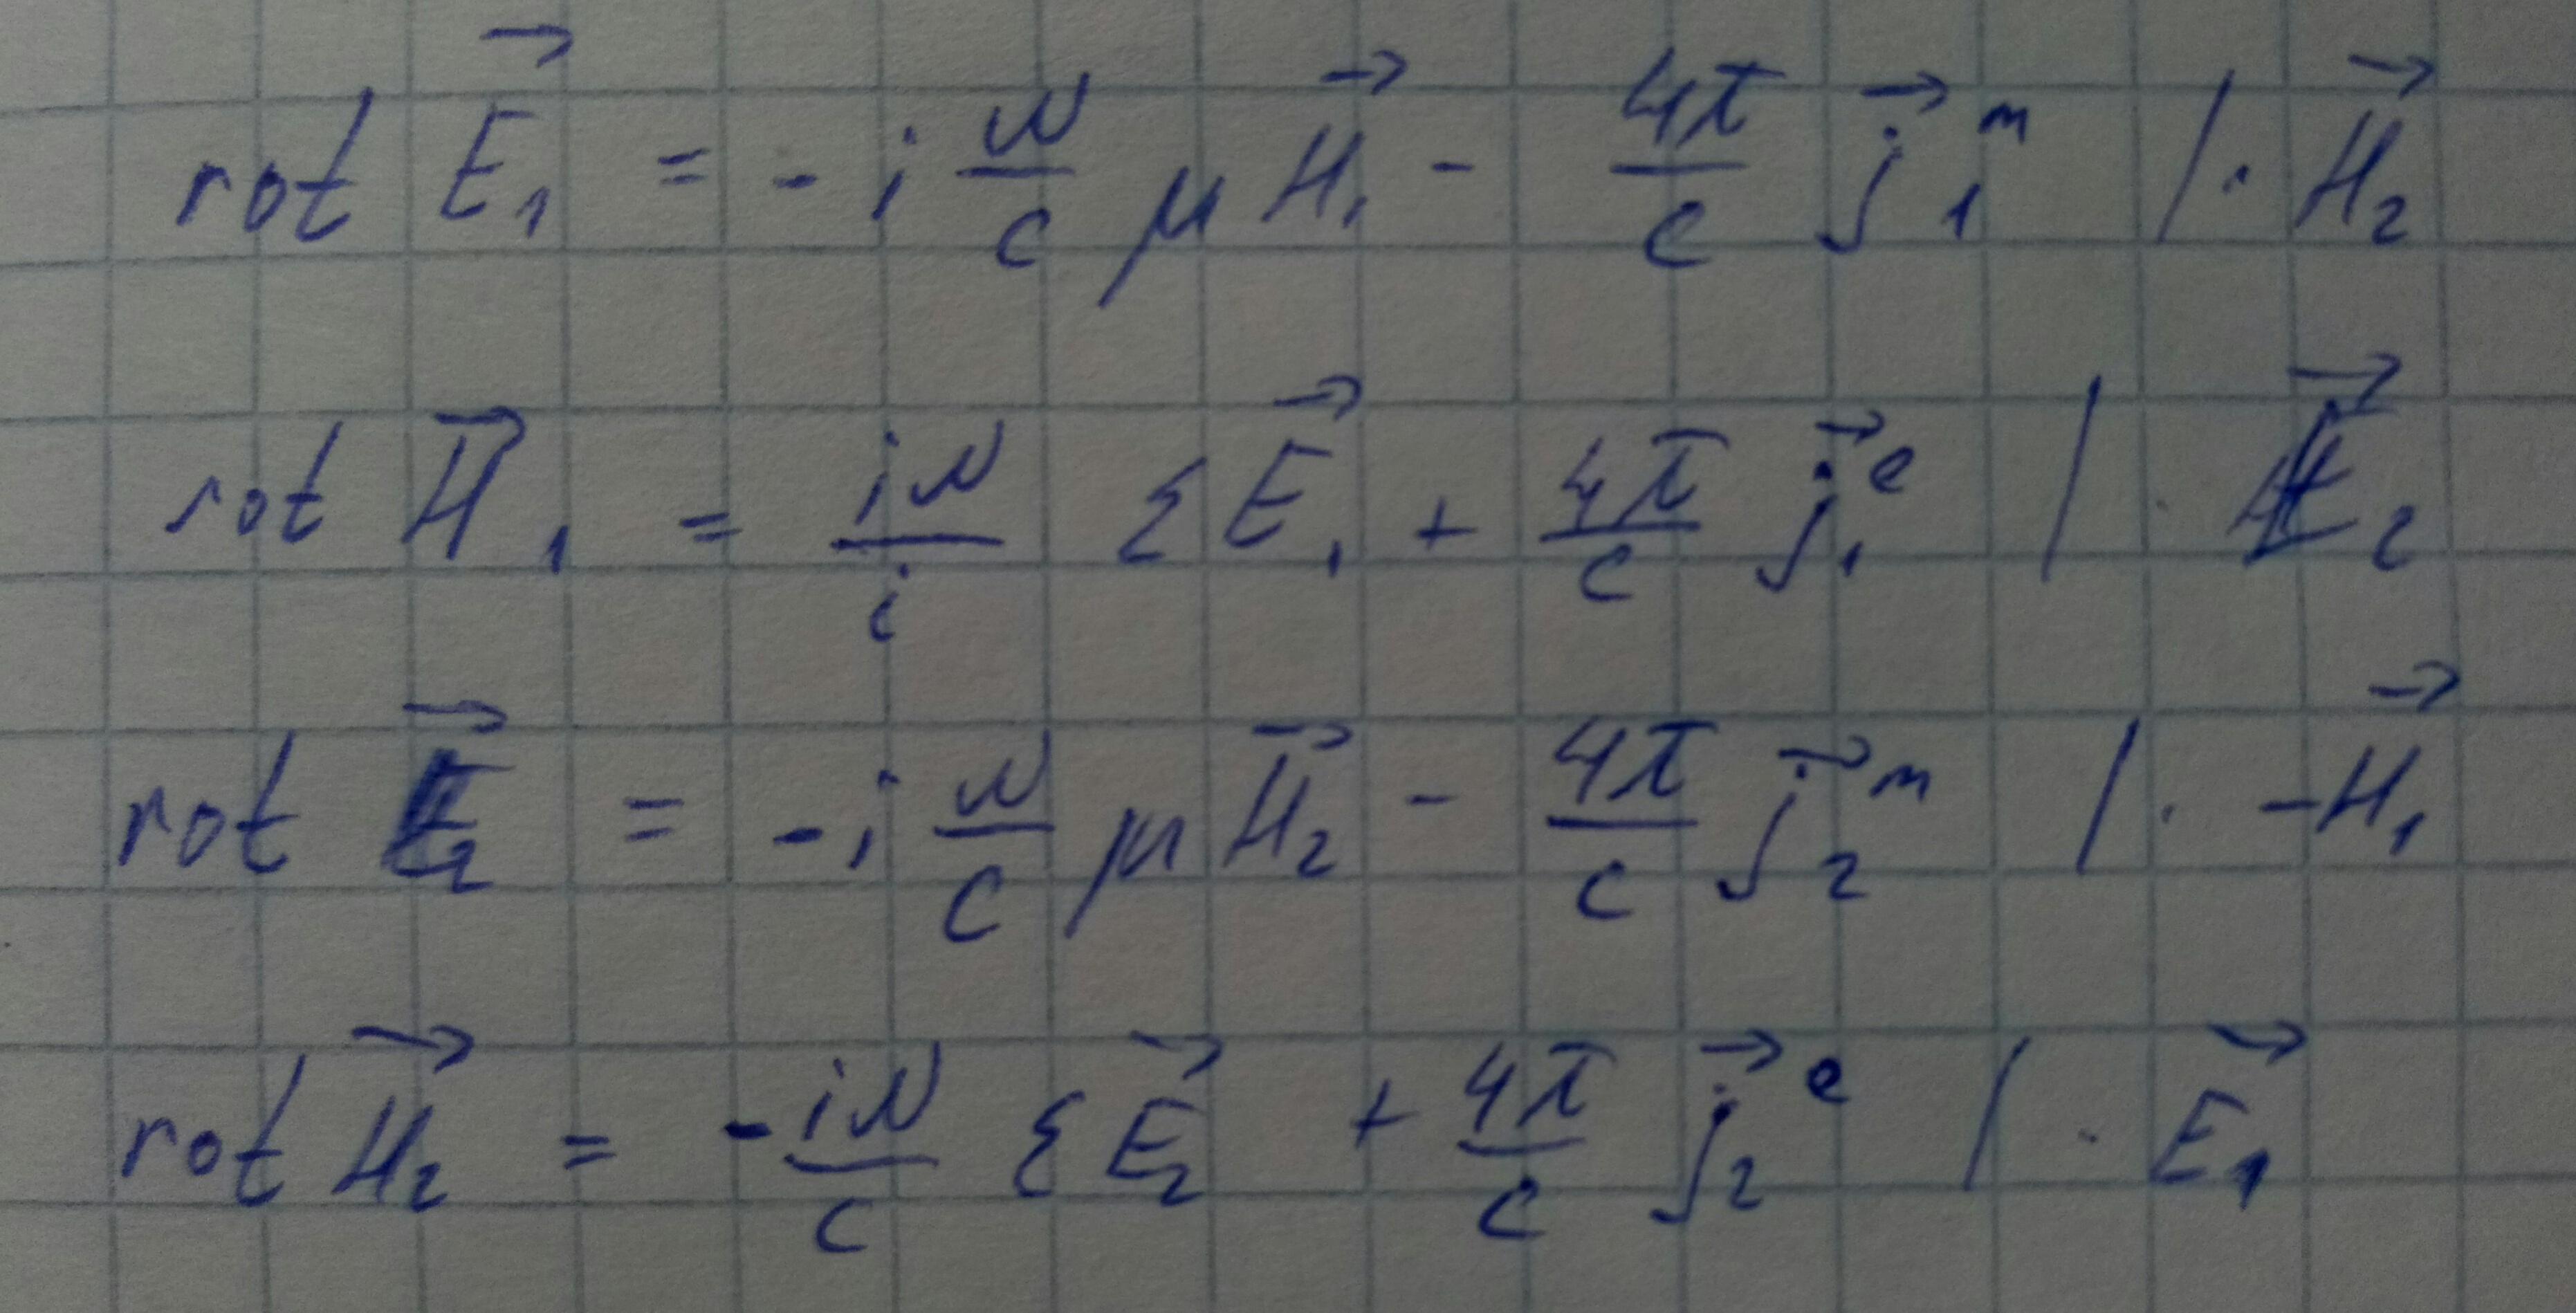 rot E⃗₁ = - i ω/c μ H⃗₁ - 4π/c j⃗₁ᵐ | · H⃗₂
rot H⃗₁ = iω/i ε E⃗₁ + 4π/c j⃗₁ᵉ | · E⃗₂
rot E⃗₂ = - i ω/c μ H⃗₂ - 4π/c j⃗₂ᵐ | · -H⃗₁
rot H⃗₂ = - iω/c ε E⃗₂ + 4π/c j⃗₂ᵉ | · E⃗₁